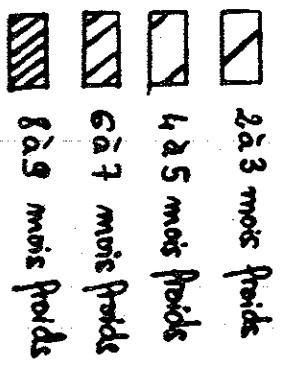 2 à 3 mois froids
4 à 5 mois froids
6 à 7 mois froids
8 à 9 mois froids